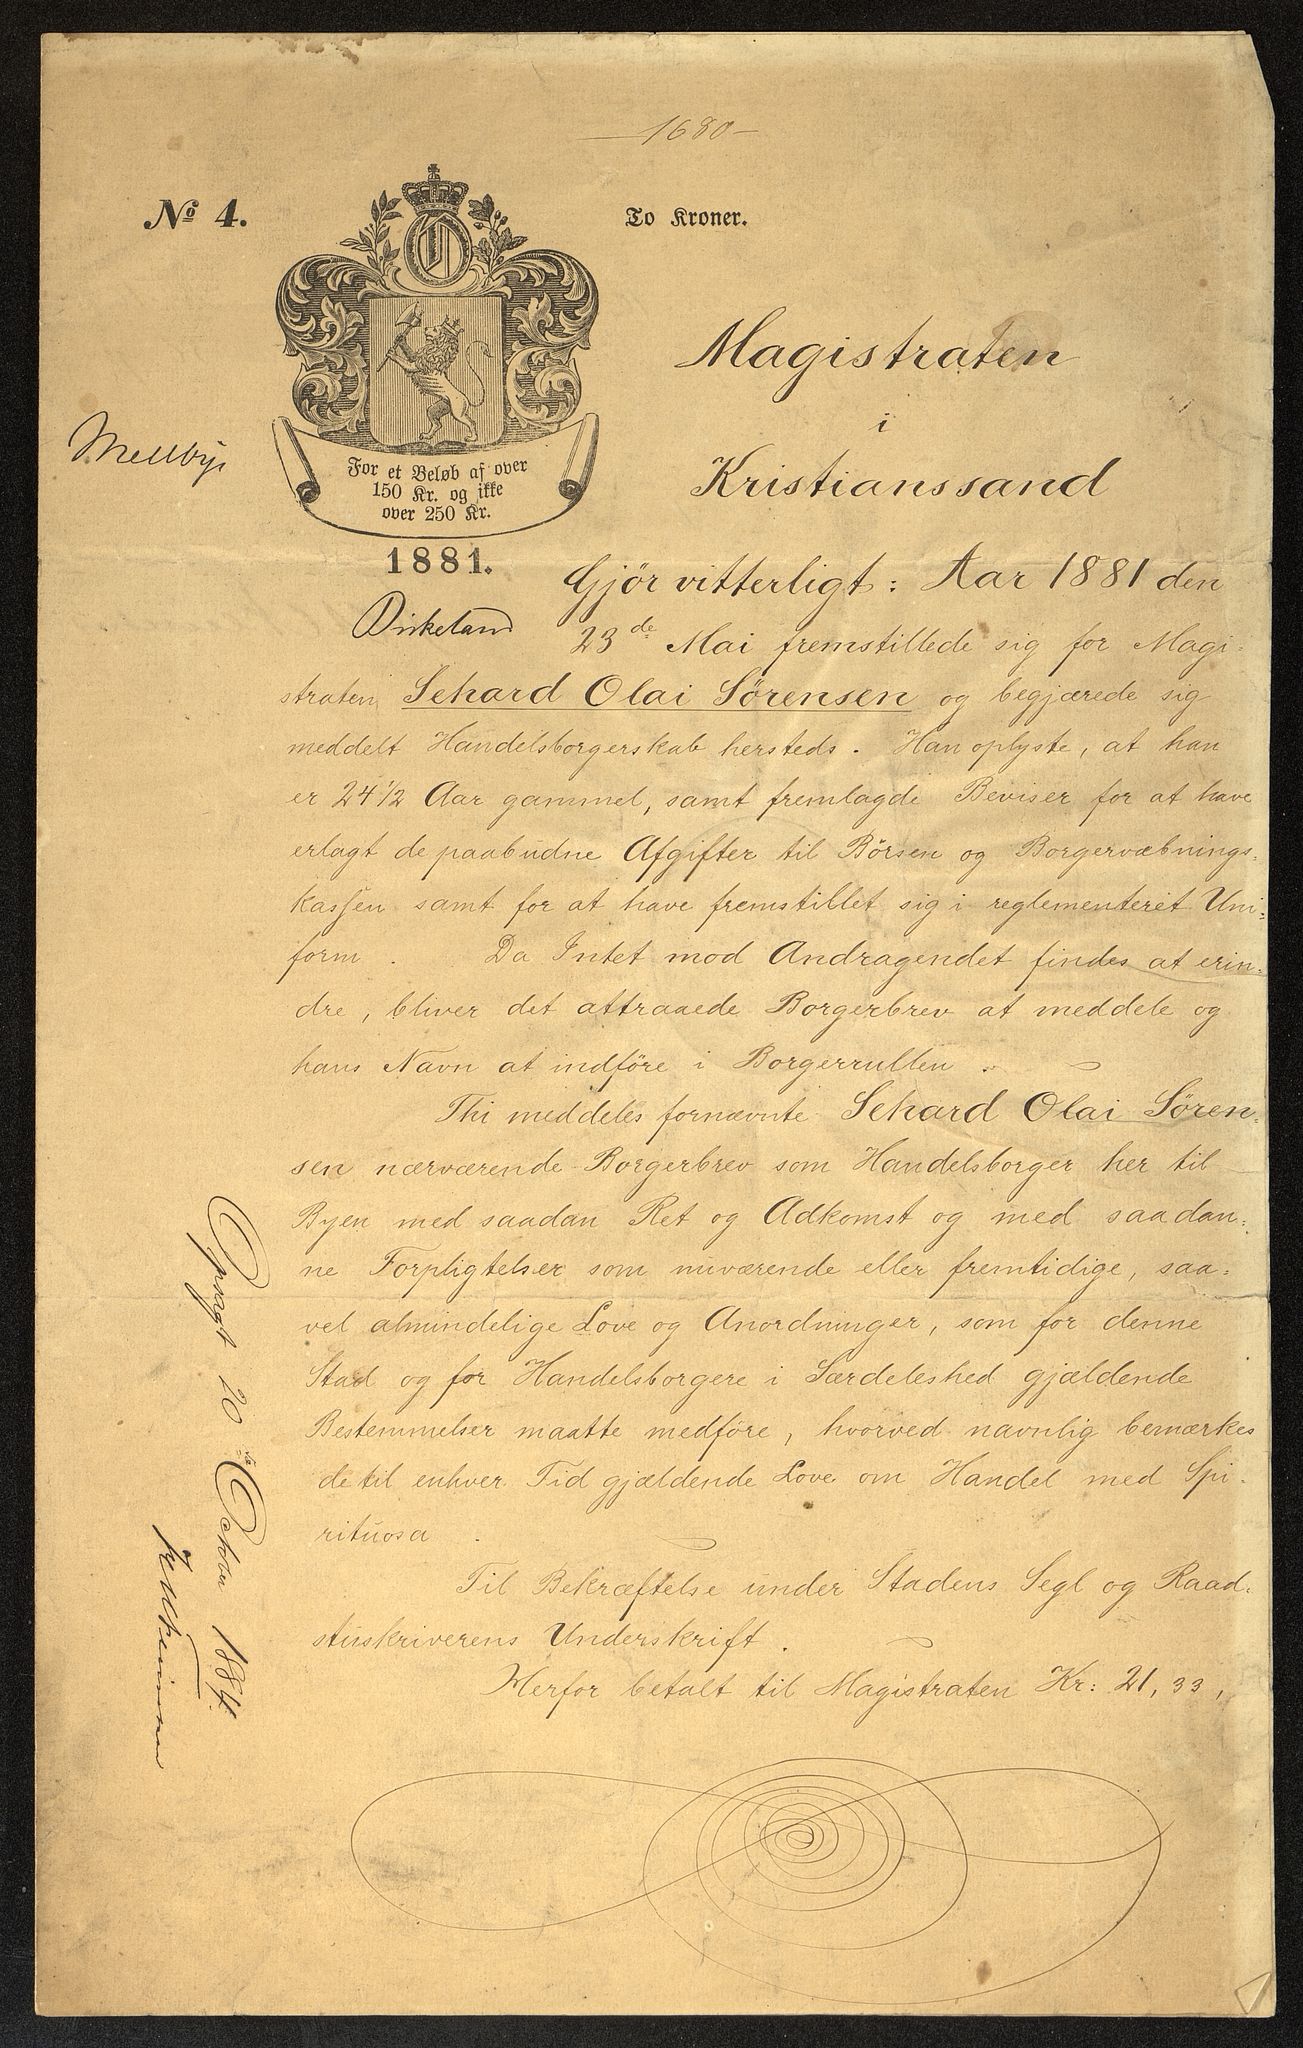 —1680—
No 4.
To Kroner.
Magistraten
i
Kristianssand
For et Beløb af over
150 Kr. og ikke
over 250 Kr.
1881.
Gjör vitterligt: Aar 1881 den
23de Mai fremstillede sig for Magi-
straten Sehard Olai Sørensen og begjærede sig
meddelt Handelsborgerskab hersteds. Han oplyste, at han
er 24 1/2 Aar gammel, samt fremlagde Beviser for at have
erlagt de paabudne Afgifter til Børsen og Borgervæbnings-
kassen samt for at have fremstillet sig i reglementeret Uni-
form. Da Intet mod Andragendet findes at erin-
dre, bliver det attraaede Borgerbrev at meddele og
hans Navn at indföre i Borgerrullen.
Thi meddeles fornævnte Sehard Olai Søren-
sen nærværende Borgerbrev som Handelsborger her til
Byen med saadan Ret og Adkomst og med saadan-
ne Forpligtelser som nuværende eller fremtidige, saa-
vel almindelige Love og Anordninger, som for denne
Stad og for Handelsborgere i Særdeleshed gjældende
Bestemmelser maatte medföre, hvorved navnlig bemærkes
de til enhver Tid gjældende Love om Handel med Spi-
rituosa.
Til Bekræftelse under Stadens Segl og Raad-
stuskriverens Underskrift.
Herfor betalt til Magistraten Kr: 21,33,
Opsagt 20de October 1884.